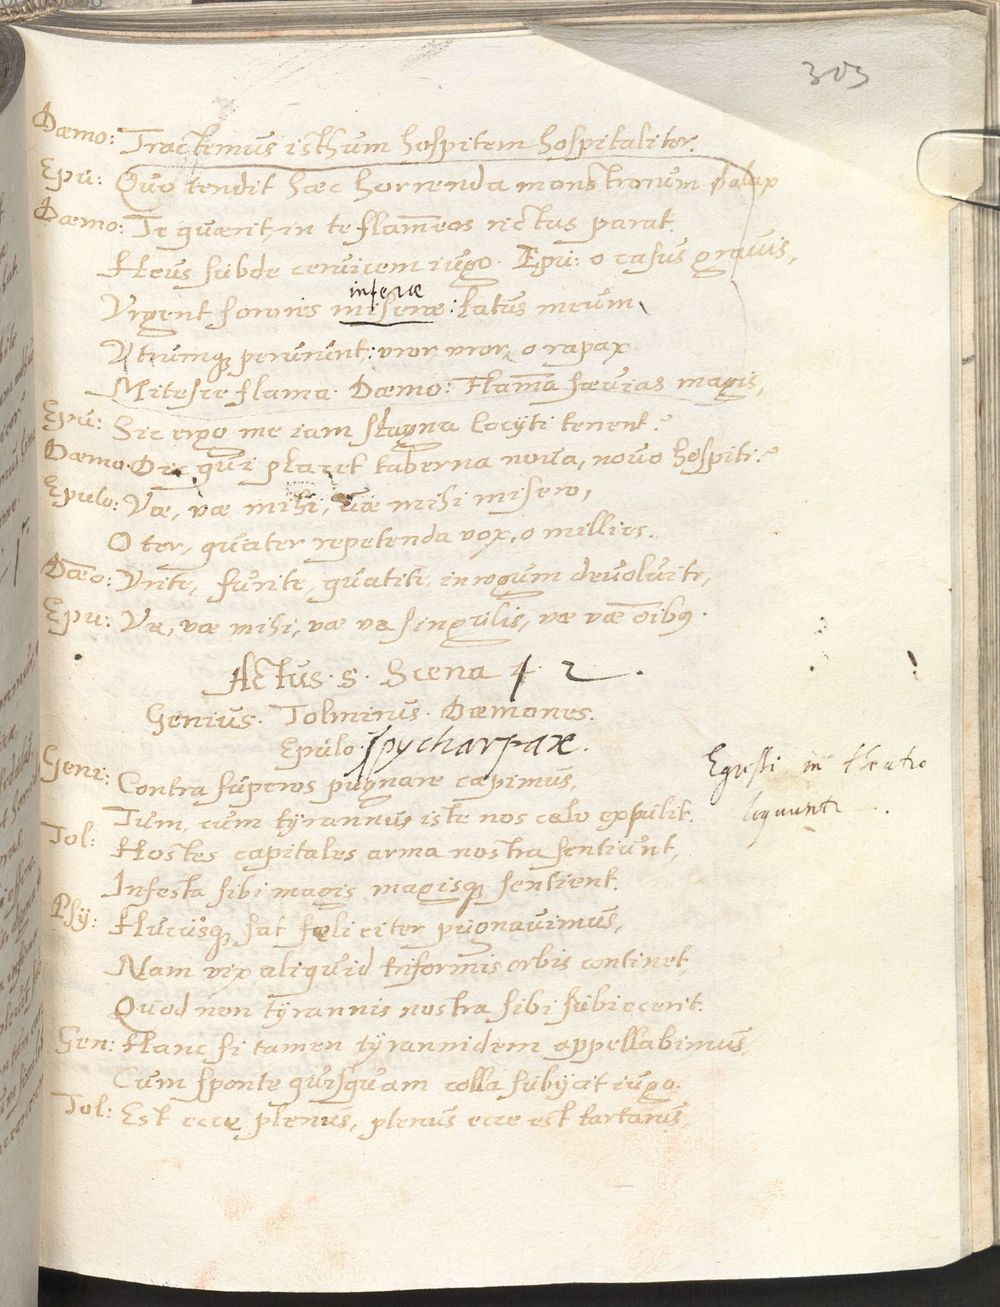 303
Dæmo: Tractemus isthum hospitem hospitaliter.
Epu: Quo tendit hæc horrenda monstrorum phalax
Dæmo: Te quærit, in te flam̄eos rictus parat.
Heus subde ceruicem iugo. Epu: o casus grauis,
inferæ
Vrgent sorores miseræ: latus meum
Vtrumq; perurunt: vror vror, o rapax
Mitesce flama. Dæmo: Flama sæuias magis,
Epu: Sic ergo me iam stagna Cocyti tenent?
Dæmo. Dic qui placet taberna noua, nouo hospiti?
Epulo: Væ, væ mihi, væ mihi misero,
O ter, quater repetenda vox, o millies.
Dæo: Vrite, furite, quatite, in rogum deuoluite,
Epu: Væ, væ mihi, væ væ singulis, væ væ oībus.
Actus. 5. Scena 4. 2.
Genius. Tolminus. Dæmones.
Epulo. Psycharpax.
Geni: Contra superos pugnare cæpimus,
Egressi in theatro
Tum, cum tyrannus iste nos cælo expulit.
loquuntr.
Tol: Hostes capitales arma nostra sentiunt,
Infesta sibi magis magisq; sentient.
Psy: Hucusq; sat fæliciter pugnauimus,
Nam vix aliquid triformis orbis continet,
Quod non tyrannis nostra sibi subiecerit.
Gen: Hanc si tamen tyrannidem appellabimus,
Cum sponte quisquam colla subijcit iugo.
Tol: Est ecce plenus, plenus ecce est tartarus,